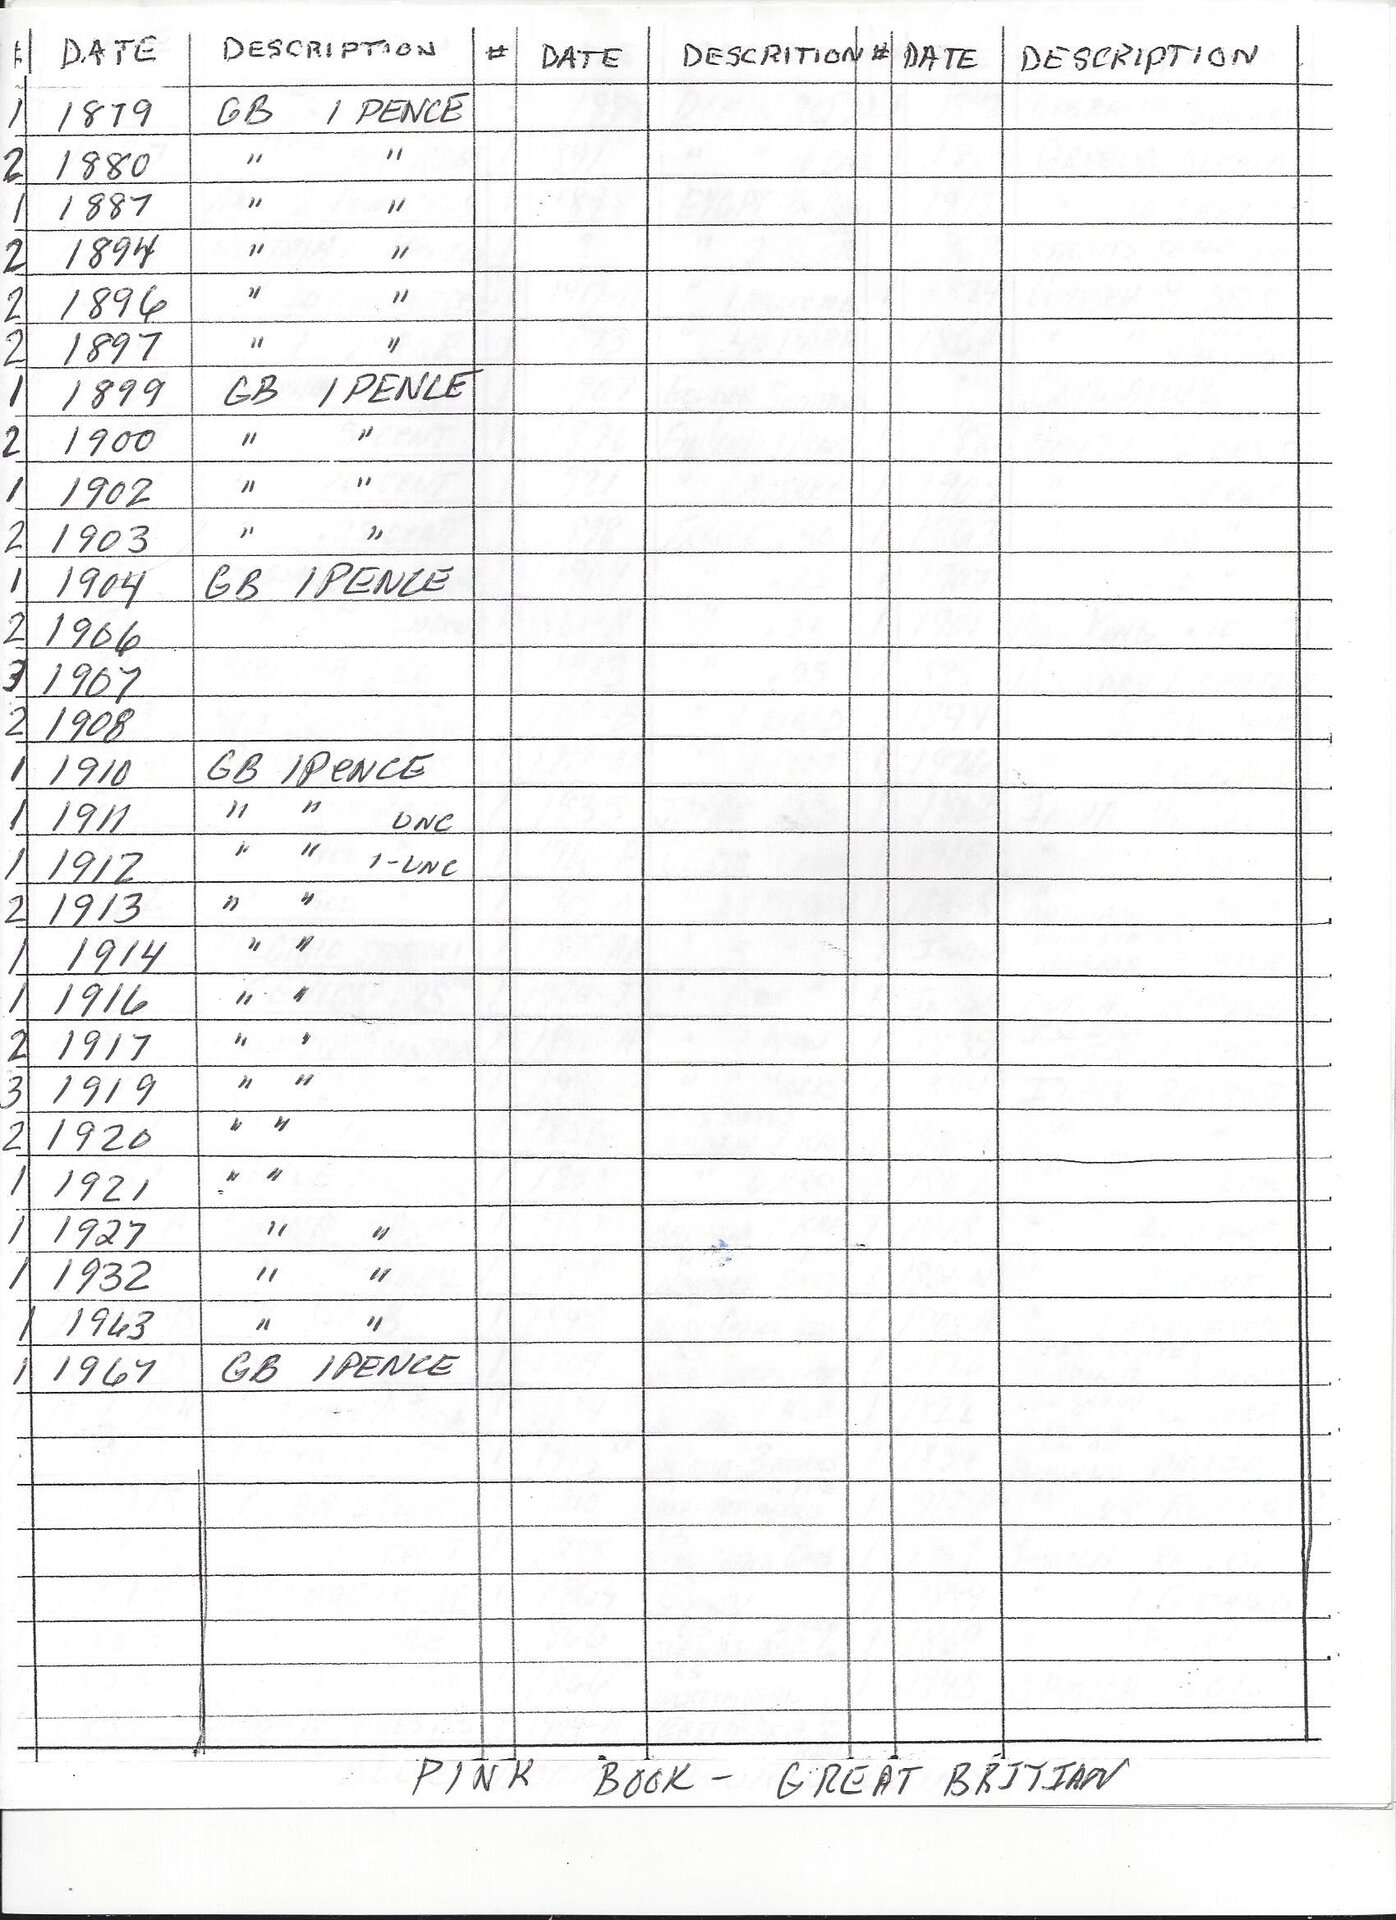 # DATE DESCRIPTION # DATE DESCRITION # DATE DESCRIPTION
1 1879 GB 1 PENCE
2 1880 " "
1 1887 " "
2 1894 " "
2 1896 " "
2 1897 " "
1 1899 GB 1 PENCE
2 1900 " "
1 1902 " "
2 1903 " "
1 1904 GB 1 PENCE
2 1906
3 1907
2 1908
1 1910 GB 1 PENCE
1 1911 " " UNC
1 1912 " " 1-UNC
2 1913 " "
1 1914 " "
1 1916 " "
2 1917 " "
3 1919 " "
2 1920 " "
1 1921 " "
1 1927 " "
1 1932 " "
1 1963 " "
1 1967 GB 1 PENCE
PINK BOOK - GREAT BRITIAN